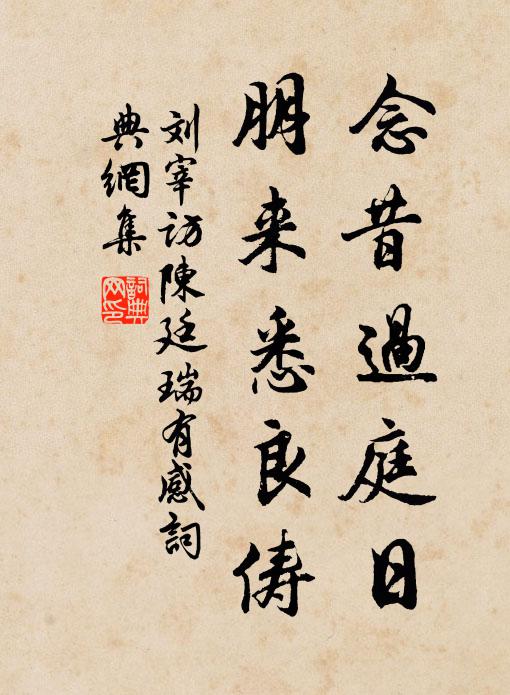 念昔過庭日
朋来悉良儔
刘宰访陳廷瑞有感詞
典網集
詞典
网印